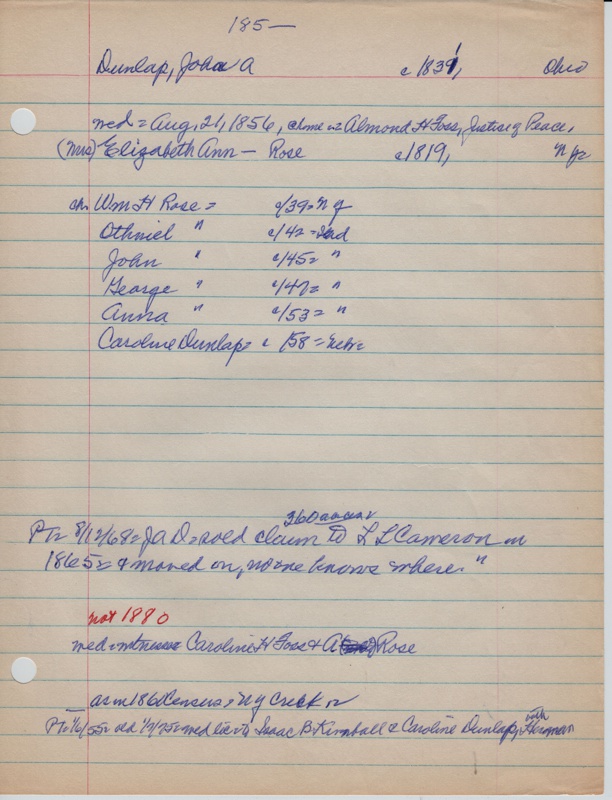 185—
Dunlap, John A c 1831, Ohio
med = Aug, 21, 1856, @home = Almond H Foss, Justice of Peace,
(Mrs) Elizabeth Ann — Rose c 1819, N Y=
ch. Wm H Rose = c/39 = N Y
Othniel " c/42 = Ind
John " c/45 = "
George " c/47 = "
Anna " c/53 = "
Caroline Dunlap = c /58 = Nebr =
360 acres
PT = 8/12/68 = J A D = sold claim to L L Cameron in
1865 = & moved on, no one knows where. "
not 1880
med = witnesses Caroline H Foss & A Rose
as in 1860 census, = Creek
PT = 1/6/55 = old = med lic to Isaac B Kimball & Caroline Dunlap, with Herman